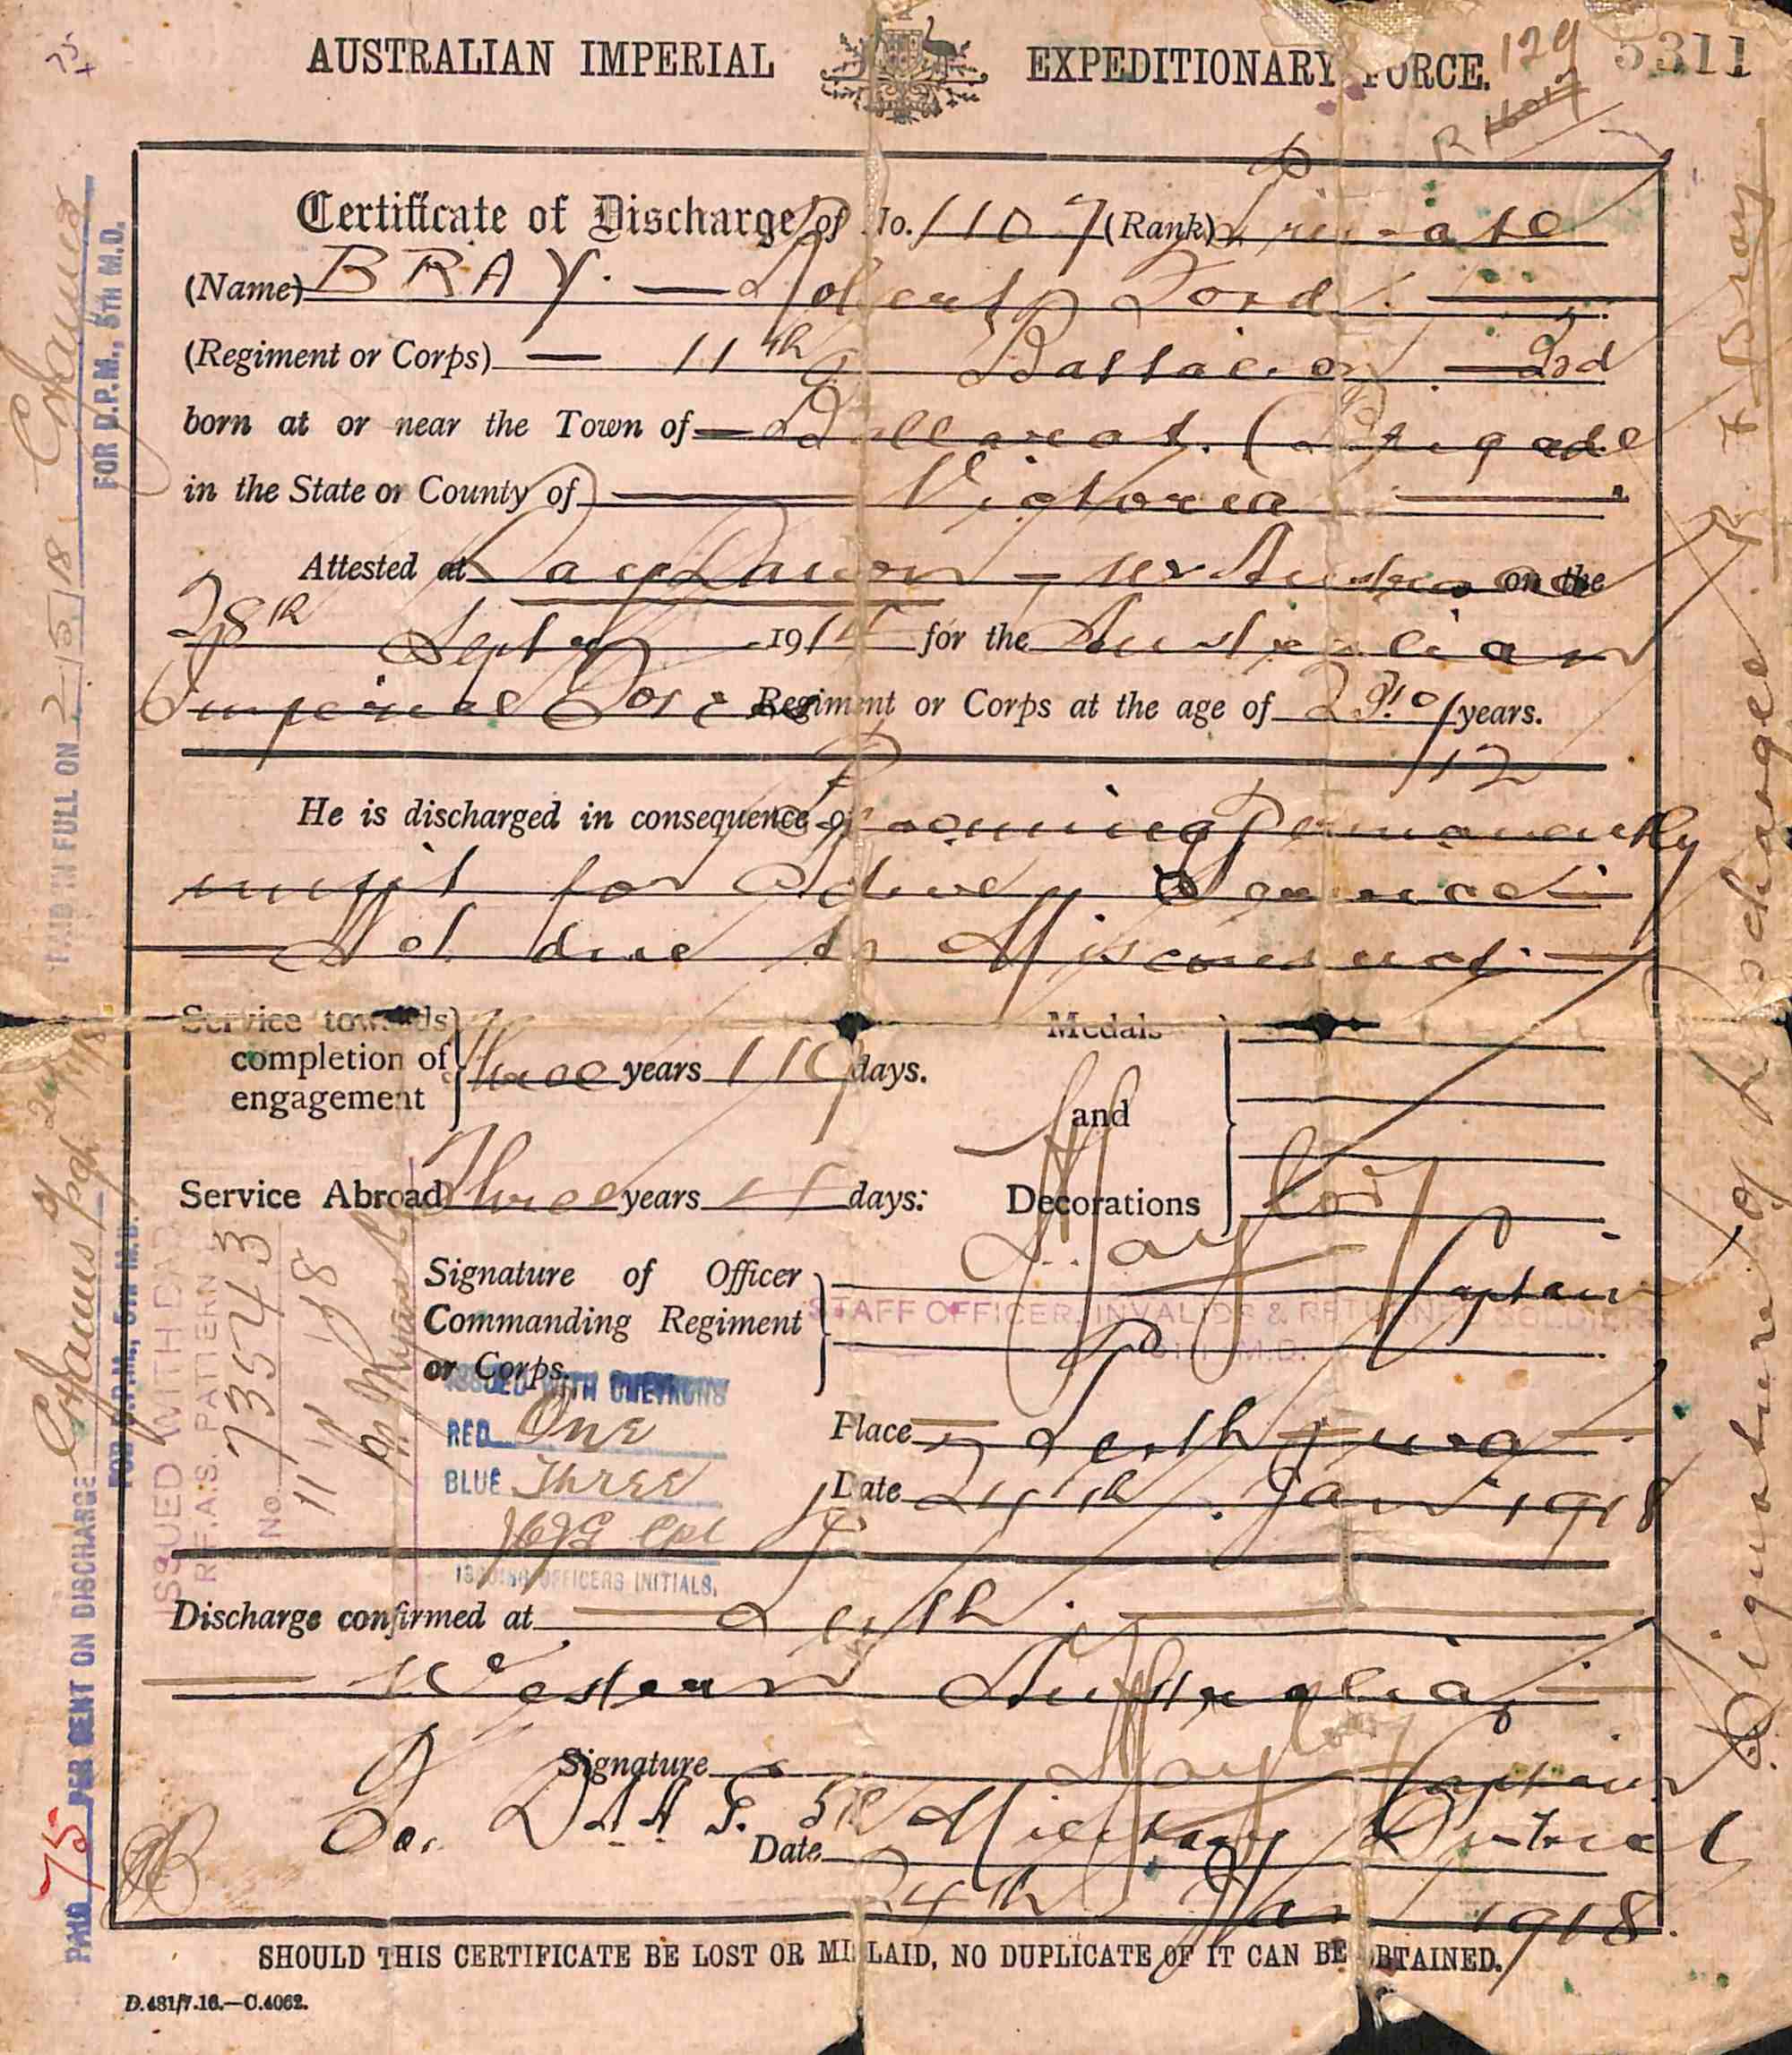 AUSTRALIAN IMPERIAL EXPEDITIONARY FORCE.
129 5311
Certificate of Discharge of No. 1107 (Rank) Private
(Name) BRAY. — Robert Ford.
(Regiment or Corps) — 11th Battalion — 3rd
born at or near the Town of — Ballarat. (Brigade
in the State or County of Victoria
Attested at Blackboy - W. Australia on the
28th Septr 1914 for the Australian
Imperial Force Regiment or Corps at the age of 29 10/12 years.
He is discharged in consequence of becoming Permanently
unfit for Active Service
— Not due to Misconduct —
Service towards completion of engagement Three years 119 days.
Service Abroad Three years 4 days:
Medals and Decorations
Signature of Officer Commanding Regiment or Corps. Taylor Captain
STAFF OFFICER, INVALIDS & RETURNED SOLDIERS
5TH M.D.
Place Perth W.A
Date 24th. Jan 1918
ISSUED WITH CHEVRONS
RED One
BLUE Three
Cpl
ISSUING OFFICERS INITIALS.
Discharge confirmed at Perth.
Western Australia
Signature Taylor Captain
for D.A.A.G. 5th Military District
Date 24th Jan 1918.
SHOULD THIS CERTIFICATE BE LOST OR MISLAID, NO DUPLICATE OF IT CAN BE OBTAINED.
D.481/7.16.—C.4062.
PAID IN FULL ON 2/5/18
FOR D.P.M., 5TH M.D.
PAID 75 PER CENT ON DISCHARGE
FOR D.P.M., 5TH M.D.
ISSUED WITH BADGE
R.F.A.S. PATTERN
No 73543
Signature of Dischargee R. F Bray